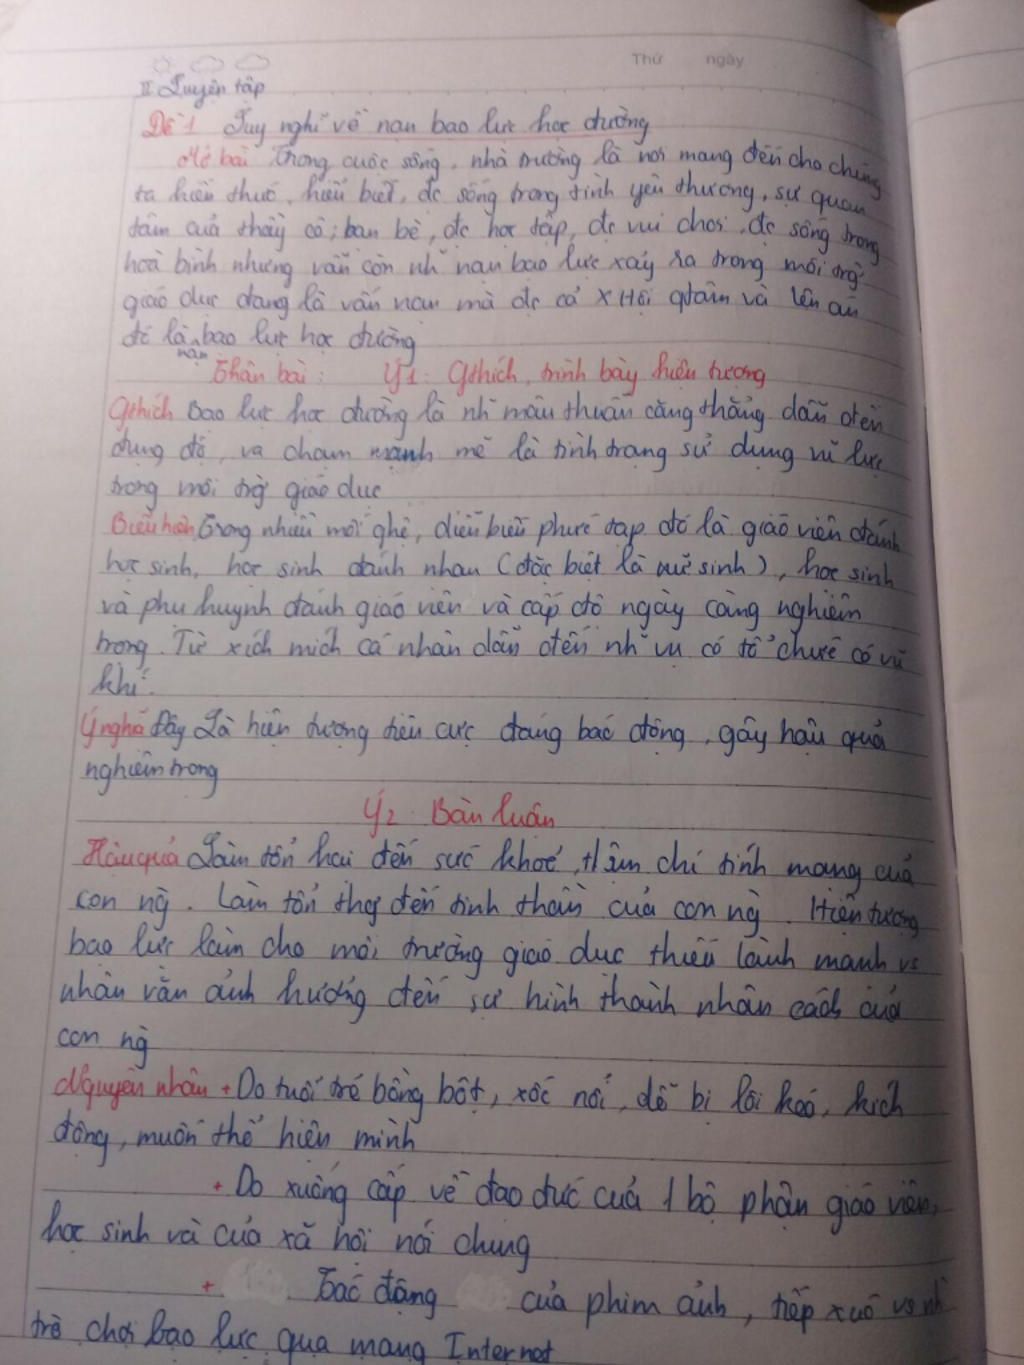 Thứ ngày
II Luyện tập
Đề 1 Suy nghĩ về nạn bạo lực học đường
Mở bài Trong cuộc sống, nhà trường là nơi mang đến cho chúng
ta kiến thức, hiểu biết, đc sống trong tình yêu thương, sự quan
tâm của thầy cô, bạn bè, đc học tập, đc vui chơi, đc sống trong
hoà bình nhưng vẫn còn nh~ nạn bạo lực xảy ra trong môi trg`
giáo dục đang là vấn nạn mà đc cả x Hội qtâm và lên án
đó là nạn bạo lực học đường
Thân bài: Ý1: Gthích, trình bày hiện tượng
Gthích Bạo lực học đường là nh~ mâu thuẫn căng thẳng dẫn đến
đụng độ, va chạm mạnh mẽ là tình trạng sử dụng vũ lực
trong môi trg` giáo dục
Biểu hiện Trong nhiều mối qhệ, diễn biến phức tạp đó là giáo viên đánh
học sinh, học sinh đánh nhau (đặc biệt là nữ sinh), học sinh
và phụ huynh đánh giáo viên và cấp độ ngày càng nghiêm
trọng. Từ xích mích cá nhân dẫn đến nh~ vụ có tổ chức có vũ
khí.
Ý nghĩa Đây Là hiện tượng tiêu cực đáng báo động, gây hậu quả
nghiêm trọng
Ý2: Bàn luận
Hậu quả Làm tổn hại đến sức khoẻ, thậm chí tính mạng của
con ng`. Làm tổn thg đến tinh thần của con ng`. Hiện tượng
bạo lực làm cho môi trường giáo dục thiếu lành mạnh vs
nhân văn ảnh hưởng đến sự hình thành nhân cách của
con ng`
Nguyên nhân + Do tuổi trẻ bồng bột, xốc nổi, dễ bị lôi kéo, kích
động, muốn thể hiện mình
+ Do xuống cấp về đạo đức của 1 bộ phận giáo viên,
học sinh và của xã hội nói chung
+ Tác động của phim ảnh, tiếp xúc vs nh~
trò chơi bạo lực qua mạng Internet